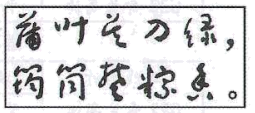 蒲叶吴刀绿，
筠筒楚粽香。